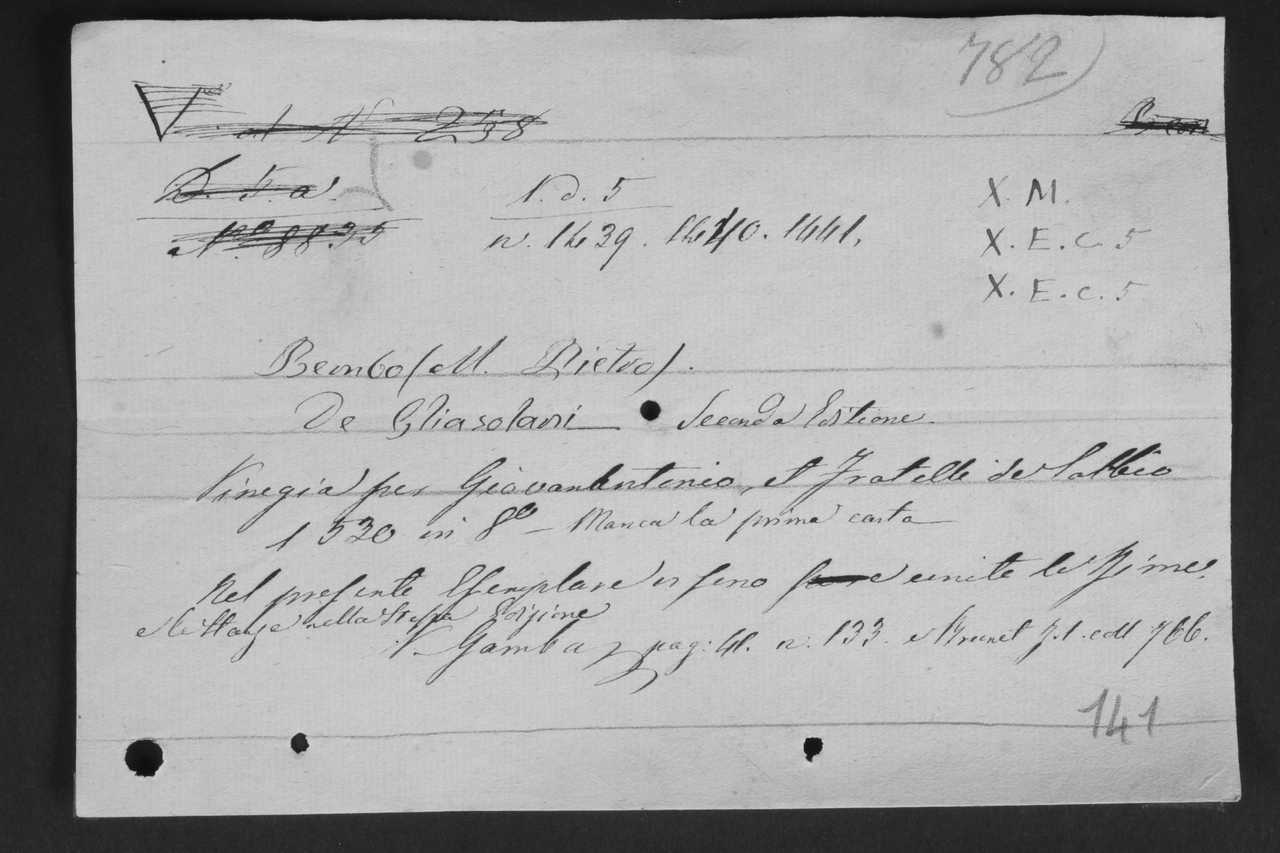 782)
V. 1 N 258
D. 5. a.
N.º 8835
V. d. 5
n. 1439. 1440. 1441.
X. M.
X. E. C. 5
X. E. c. 5
Bembo (M. Pietro).
De Gliasolani Seconda Editione.
Vinegia per Giovanantonio, et Fratelli de Sabbio
1530 in 8º – Manca la prima carta
Nel presente Esemplare vi sono unite le Rime,
e le Stanze nella stessa Edizione
V. Gamba pag: 41. n. 133. e Brunet T. 1. coll 766.
141